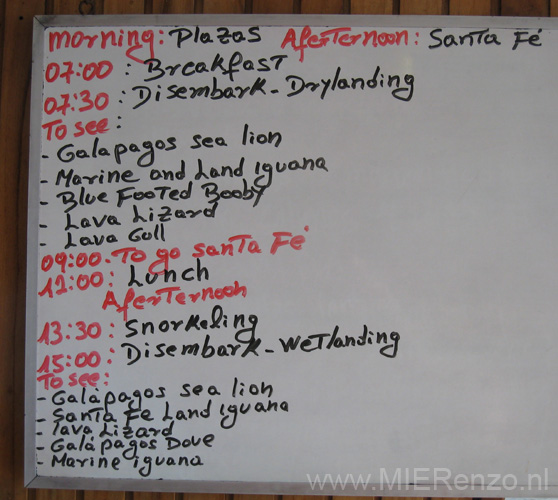 morning: Plazas AferTernoon: SanTa Fé
07:00 : BreakfasT
07:30 : Disembark - Drylanding
To see :
- Galapagos sea lion
- Marine and Land iguana
- Blue FooTed Booby
- Lava Lizard
- Lava Gull
09:00. To go sanTa Fé
12:00 : Lunch
AferTernoon
13:30 : Snorkeling
15:00 : Disembark - weTlanding
To see :
- Galápagos sea lion
- SanTa Fe Land iguana
- Lava Lizard
- Galápagos Dove
- Marine iguana
www.MIERenzo.nl